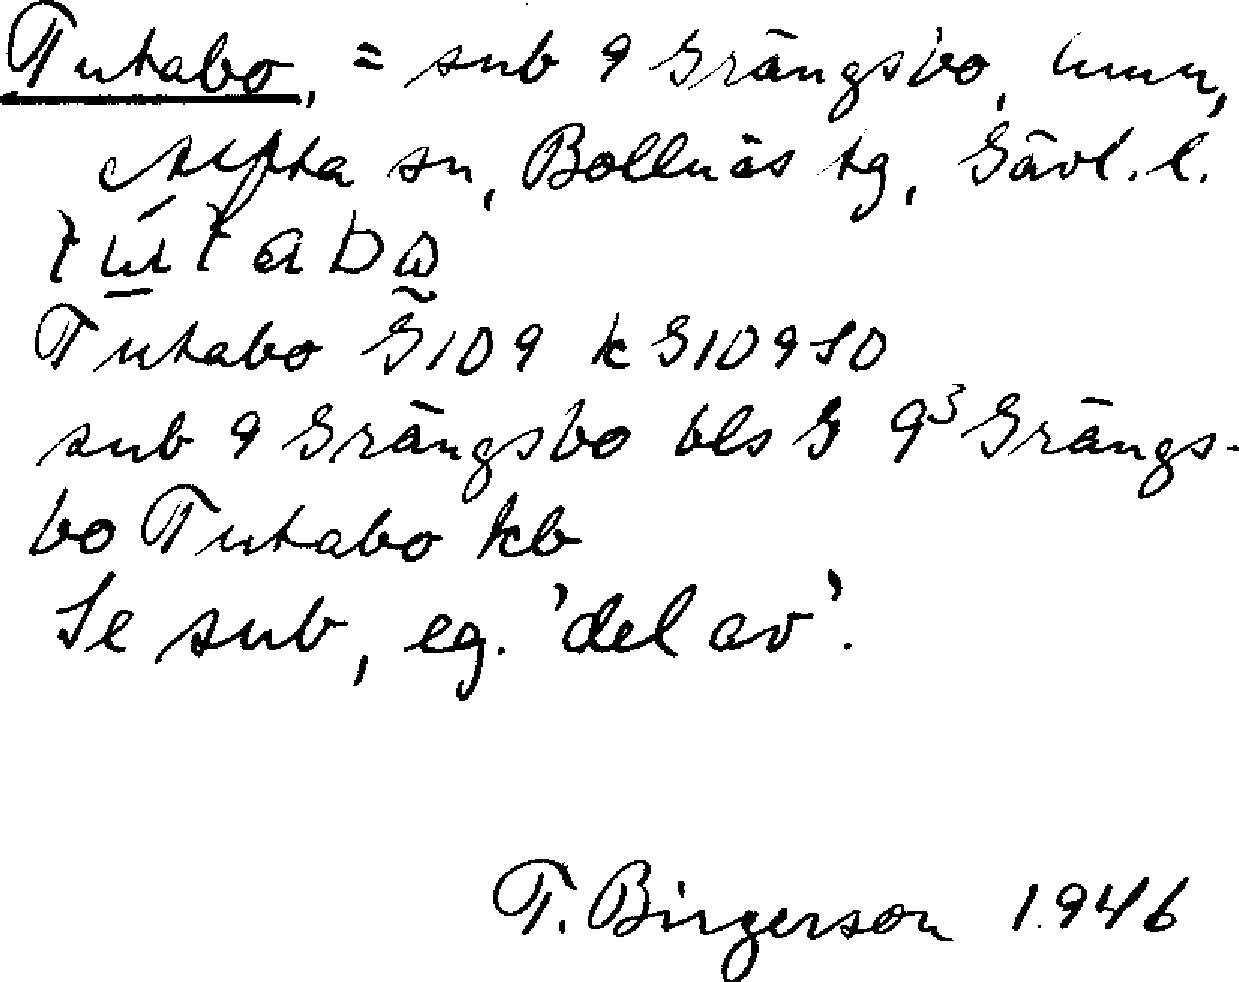 Tutabo, = sub 9 Grängsbo, hmn,
Alfta sn, Bollnäs tg, Gävl. l.
Tutabo G109 k G109 SO
sub 9 Grängsbo bls G 9³ Grängs-
bo Tutabo kb
Se sub, eg. 'del av'.
T. Birgerson 1946